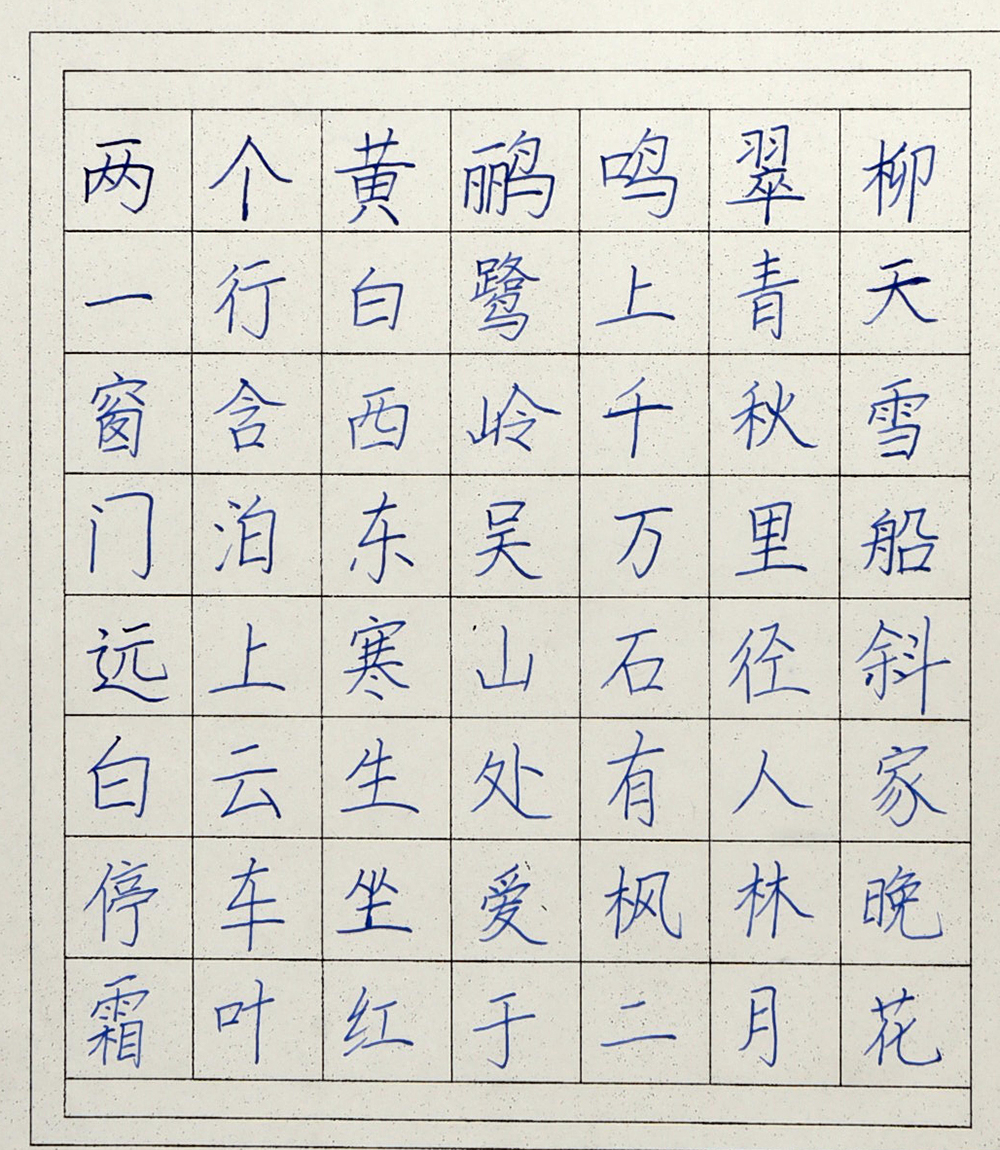 两个黄鹂鸣翠柳
一行白鹭上青天
窗含西岭千秋雪
门泊东吴万里船
远上寒山石径斜
白云生处有人家
停车坐爱枫林晚
霜叶红于二月花